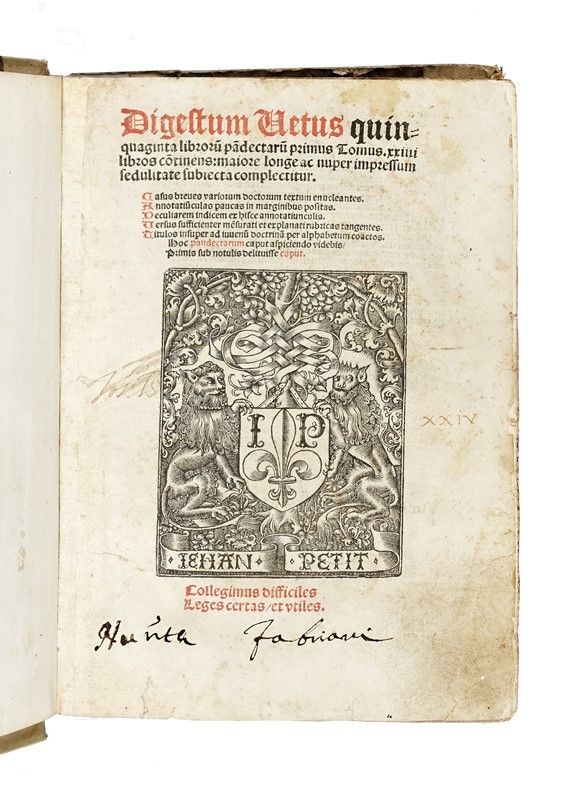 Digestum Uetus quin⸗
quaginta librorū pādectarū primus Tomus.xxiiii
libros cōtinens:maiore longe ac nuper impressum
sedulitate subiecta complectitur.
Casus breues variorum doctorum textum enucleantes.
Annotatiūculas paucas in marginibus positas.
Peculiarem indicem ex hisce annotatiunculis.
Uersus sufficienter mēsurati et explanati rubricas tangentes.
Titulos insuper ad iuuenū doctrinā per alphabetum coactos.
Hoc pandectarum caput aspiciendo videbis/
Primis sub notulis delituisse caput.
I P
XXIV
IEHAN · PETIT
Collegimus difficiles
Leges certas/et vtiles.